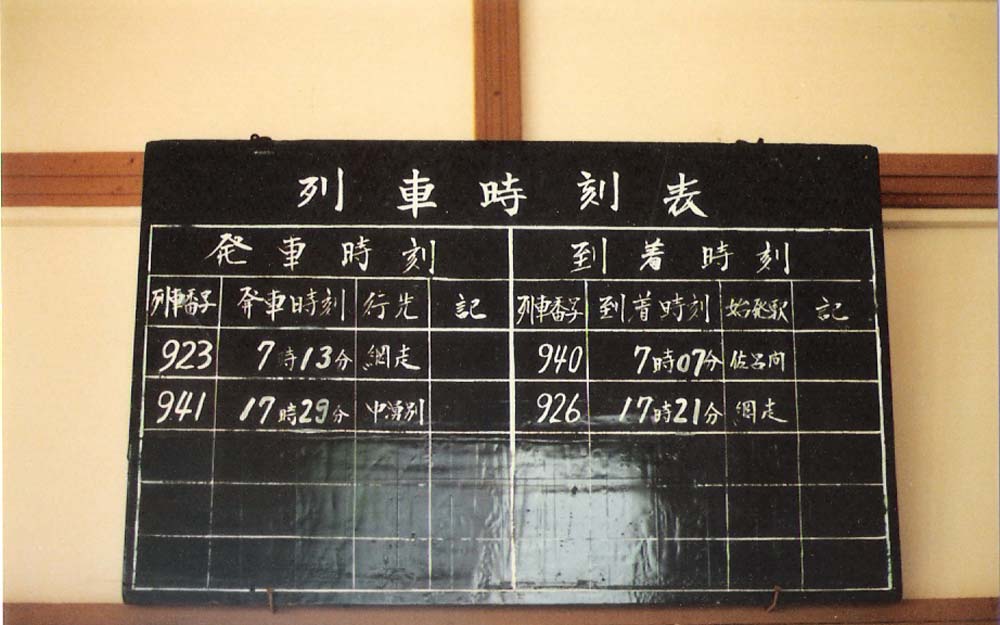 列車時刻表
発車時刻 到着時刻
列車番号 発車時刻 行先 記 列車番号 到着時刻 始発駅 記
923 7時13分 網走 940 7時07分 佐呂間
941 17時29分 中湧別 926 17時21分 網走